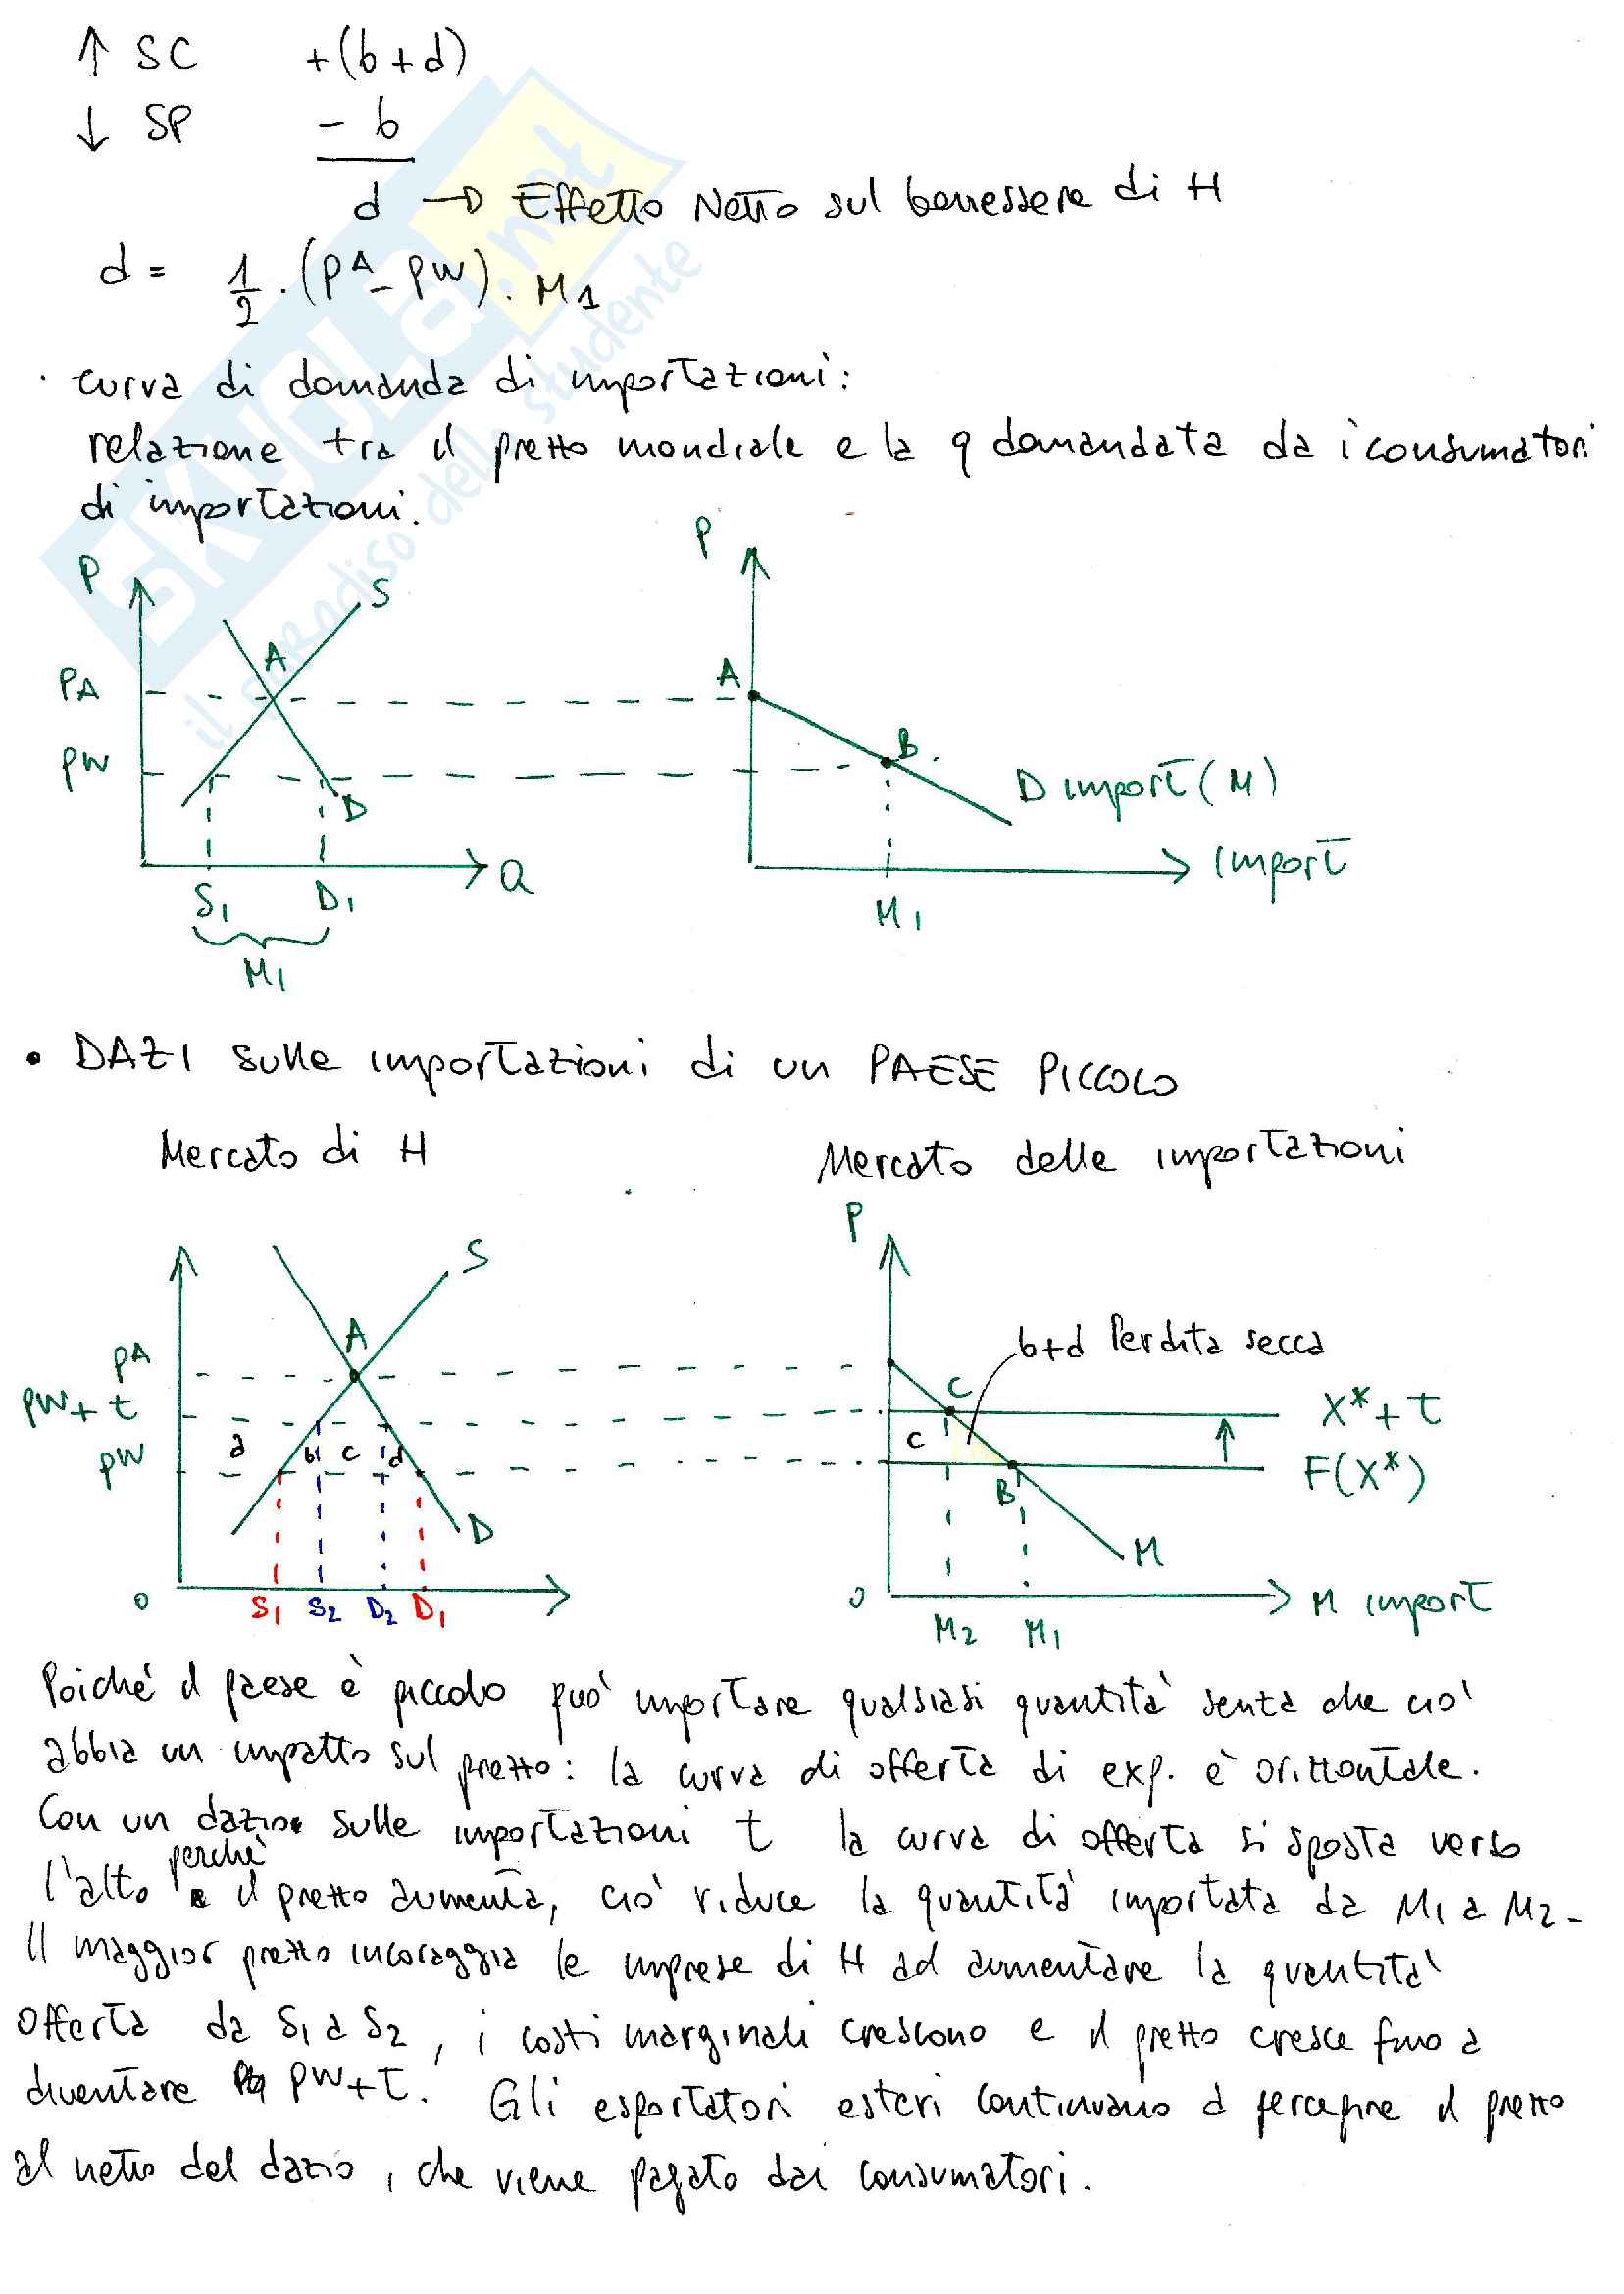 ↑ SC +(b+d)
↓ SP - b
d → Effetto Netto sul benessere di H
d = 1/2 · (PA - PW) · M1
· curva di domanda di importazioni:
relazione tra il prezzo mondiale e la q domandata da i consumatori
di importazioni.
P
S
A
PA
PW
D
S1 D1
Q
M1
P
A
B
D import (M)
import
M1
• DAZI sulle importazioni di un PAESE PICCOLO
Mercato di H
Mercato delle importazioni
S
A
PA
PW + t
PW
a b c d
D
0
S1 S2 D2 D1
P
b+d Perdita secca
C
X* + t
c
F(X*)
B
M
0
M import
M2 M1
Poiché il paese è piccolo può importare qualsiasi quantità senza che ciò
abbia un impatto sul prezzo: la curva di offerta di exp. è orizzontale.
Con un dazio sulle importazioni t la curva di offerta si sposta verso
l'alto perchè il prezzo aumenta, ciò riduce la quantità importata da M1 a M2-
Il maggior prezzo incoraggia le imprese di H ad aumentare la quantità
offerta da S1 a S2, i costi marginali crescono e il prezzo cresce fino a
diventare PW+t. Gli esportatori esteri continuano a percepire il prezzo
al netto del dazio, che viene pagato dai consumatori.
SKUOLA.net
il paradiso dello studente